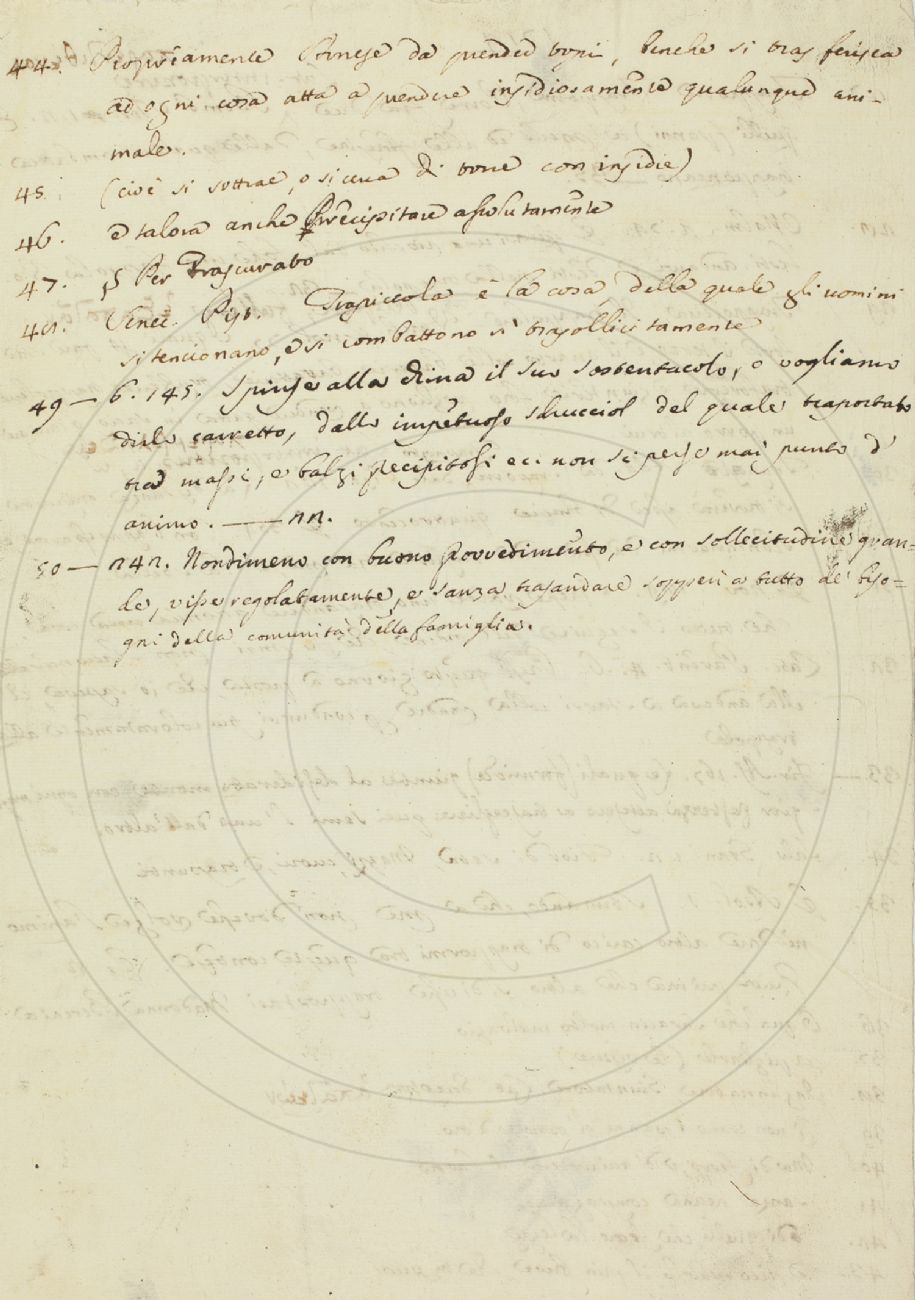 44. Propriamente Arnese da prender topi, benche si trasferisca
ad ogni cosa atta a prendere insidiosamente qualunque ani-
male.
45. (cioè si sottrae, o si cura di torre con insidie)
46. e talora anche Precipitare assolutamente
47. § Per Trascurato
48. Vinci. Pist. Trapiccola è la cosa, della quale gli uomini
si tencionano, e si combattono sì trasollicitamente
49 — 6. 145. Spinse alla china il suo sostentacolo, o vogliamo
dirlo carretto, dallo impetuoso sdrucciol del quale traportato
tra massi, e balzi precipitosi ec. non si perse mai punto d'
animo. — nn.
50 — n4n. Nondimeno con buono provvedimento, e con sollecitudine gran=
de, visse regolatamente, e sanza trasandare sopperì a tutto de' biso=
gni della comunità della famiglia.